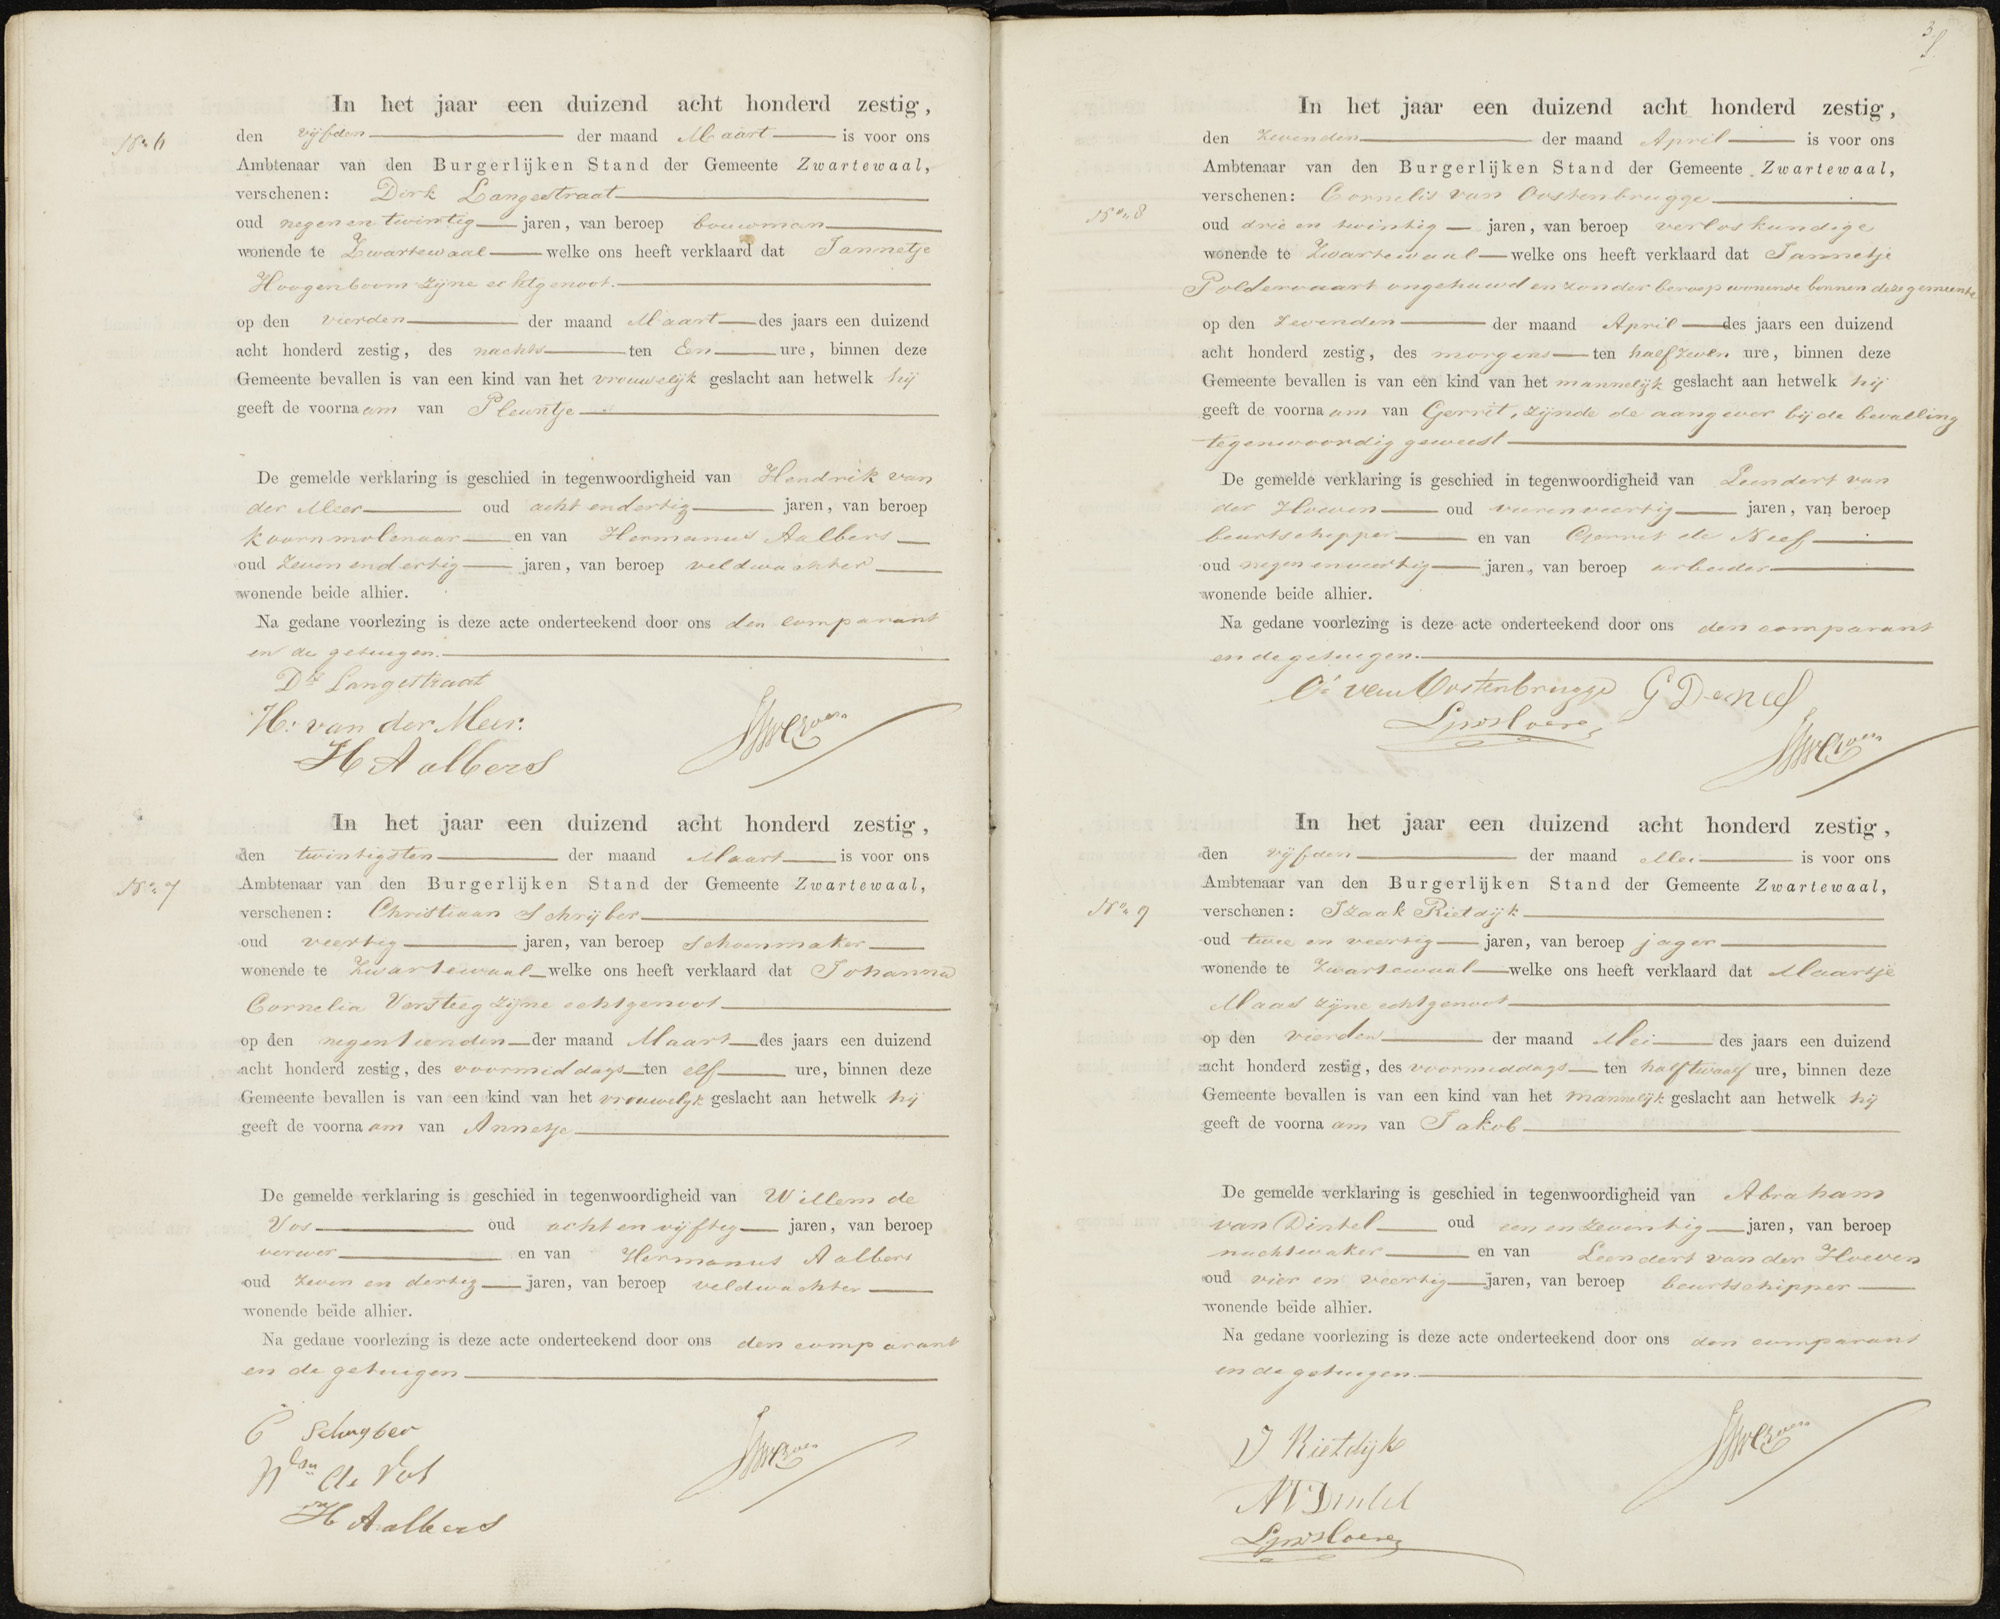 In het jaar een duizend acht honderd zestig,
No. 6
den vijfden der maand Maart is voor ons
Ambtenaar van den Burgerlijken Stand der Gemeente Zwartewaal,
verschenen: Dirk Langestraat
oud negen en twintig jaren, van beroep bouwman
wonende te Zwartewaal welke ons heeft verklaard dat Jannetje
Hoogenboom zijne echtgenoot.
op den vierden der maand Maart des jaars een duizend
acht honderd zestig, des nachts ten Een ure, binnen deze
Gemeente bevallen is van een kind van het vrouwelijk geslacht aan hetwelk hij
geeft de voornaam van Pleuntje
De gemelde verklaring is geschied in tegenwoordigheid van Hendrik van
der Meer oud acht en dertig jaren, van beroep
koornmolenaar en van Hermanus Aalbers
oud zeven en dertig jaren, van beroep veldwachter
wonende beide alhier.
Na gedane voorlezing is deze acte onderteekend door ons den comparant
en de getuigen.
Dk Langestraat
H: van der Meer.
H Aalbers
In het jaar een duizend acht honderd zestig,
den twintigsten der maand Maart is voor ons
No. 7
Ambtenaar van den Burgerlijken Stand der Gemeente Zwartewaal,
verschenen: Christiaan Schrijber
oud veertig jaren, van beroep schoenmaker
wonende te Zwartewaal welke ons heeft verklaard dat Johanna
Cornelia Versteeg zijne echtgenoot
op den negentienden der maand Maart des jaars een duizend
acht honderd zestig, des voormiddags ten elf ure, binnen deze
Gemeente bevallen is van een kind van het vrouwelijk geslacht aan hetwelk hij
geeft de voornaam van Annetje
De gemelde verklaring is geschied in tegenwoordigheid van Willem de
Vos oud acht en vijftig jaren, van beroep
verwer en van Hermanus Aalbers
oud zeven en dertig jaren, van beroep veldwachter
wonende beide alhier.
Na gedane voorlezing is deze acte onderteekend door ons den comparant
en de getuigen
C Schryber
de Vos
H Aalbers
In het jaar een duizend acht honderd zestig,
den zevenden der maand April is voor ons
Ambtenaar van den Burgerlijken Stand der Gemeente Zwartewaal,
verschenen: Cornelis van Oostenbrugge
No. 8
oud drie en twintig jaren, van beroep verloskundige
wonende te Zwartewaal welke ons heeft verklaard dat Jannetje
Poldervaart ongehuwd en zonder beroep wonende binnen deze gemeente
op den zevenden der maand April des jaars een duizend
acht honderd zestig, des morgens ten half zeven ure, binnen deze
Gemeente bevallen is van een kind van het mannelijk geslacht aan hetwelk hij
geeft de voornaam van Gerrit, zijnde de aangever bij de bevalling
tegenwoordig geweest
De gemelde verklaring is geschied in tegenwoordigheid van Leendert van
der Hoeven oud vierenveertig jaren, van beroep
beurtschipper en van Gerrit de Neef
oud negen en veertig jaren, van beroep arbeider
wonende beide alhier.
Na gedane voorlezing is deze acte onderteekend door ons den comparant
en de getuigen.
Cs van Oostenbrugge G De neef
In het jaar een duizend acht honderd zestig,
den vijfden der maand Mei is voor ons
Ambtenaar van den Burgerlijken Stand der Gemeente Zwartewaal,
No. 9
verschenen: Izaak Rietdijk
oud twee en veertig jaren, van beroep jager
wonende te Zwartewaal welke ons heeft verklaard dat Maartje
Maas zijne echtgenoot
op den vierden der maand Mei des jaars een duizend
acht honderd zestig, des voormiddags ten half twaalf ure, binnen deze
Gemeente bevallen is van een kind van het mannelijk geslacht aan hetwelk hij
geeft de voornaam van Jakob
De gemelde verklaring is geschied in tegenwoordigheid van Abraham
van Dintel oud een en zeventig jaren, van beroep
nachtwaker en van Leendert van der Hoeven
oud vier en veertig jaren, van beroep beurtschipper
wonende beide alhier.
Na gedane voorlezing is deze acte onderteekend door ons den comparant
en de getuigen.
J Rietdijk
A V Dintel